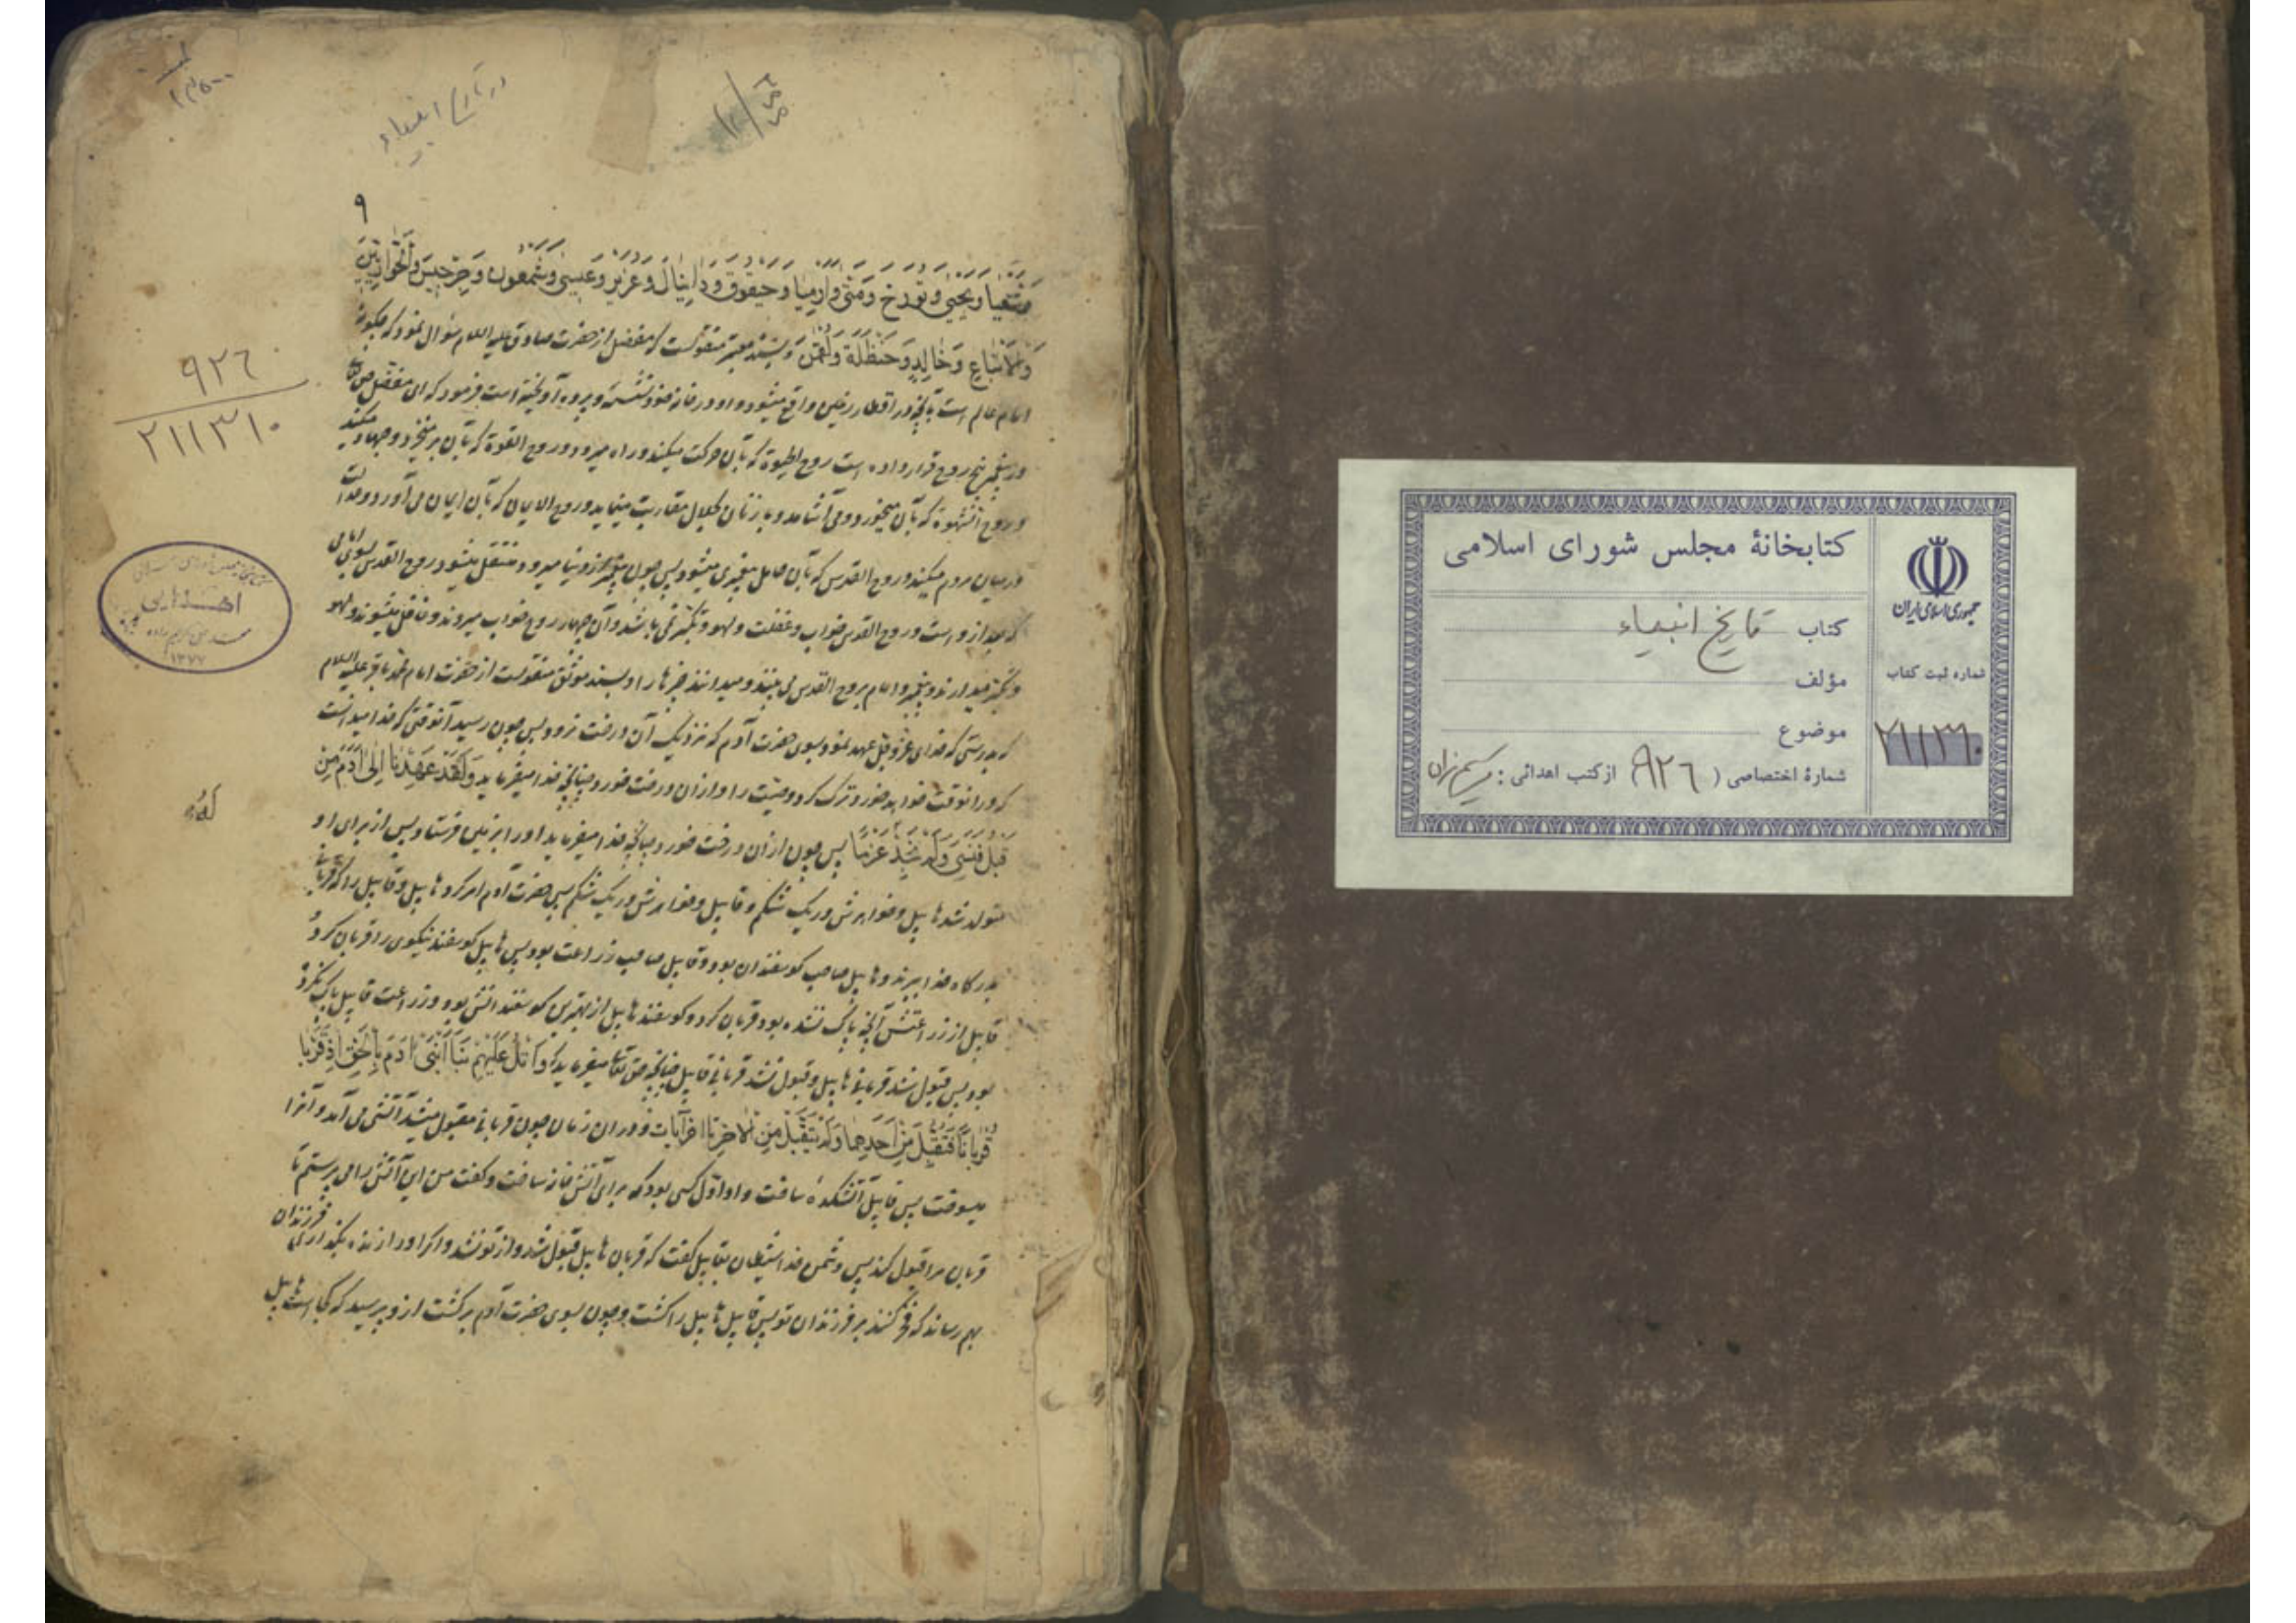 کتابخانهٔ مجلس شورای اسلامی
جمهوری اسلامی ایران
کتاب تاریخ انبیاء
مؤلف
موضوع
شمارهٔ اختصاصی ( ٩٢٦ ) از کتب اهدائی :
شماره ثبت کتاب
٢١١٣١٠
در تاریخ انبیاء
٩
وشعیا ویحیی وتورخ ومتی وارمیا وحیقوق ودانیال وعزیر وعیسی وشمعون وجرجیس والحواریین
والاتباع وخالد وحنظلة ولقمن وبسند معتبر منقولست که مفضل از حضرت صادق علیه السلام سؤال نمود که چگونه
امام عالم است بآنچه در اقطار زمین واقع میشود و او در خانه خود نشسته و پرده آویخته است فرمود که ای مفضل حق تعالی
در پیغمبر پنج روح قرار داده است روح الحیوة که بآن حرکت میکند و راه میرود و روح القوة که بآن برمیخیزد و جهاد میکند
و روح الشهوة که بآن میخورد و می آشامد و با زنان بحلال مقاربت مینماید و روح الایمان که بآن ایمان می آورد و عدالت
در میان مردم میکند و روح القدس که بآن حامل پیغمبری میشود پس چون پیغمبر از دنیا میرود منتقل میشود روح القدس بسوی امامی
که بعد از و است و روح القدس خواب و غفلت و لهو و تکبر نمی باشد و آن چهار روح خواب میروند و غافل میشوند و لهو
و تکبر میدارند و پیغمبر و امام بروح القدس می بینند و میدانند چیزها را و بسند موثق منقولست از حضرت امام محمد باقر علیه السلام
که بدرستی که خدای عز و جل عهد نمود بسوی حضرت آدم که نزدیک آن درخت نرود پس چون رسید آنوقتی که خدا میدانست
که در انوقت خواهد خورد ترک کرد وصیت را و از ان درخت خورد چنانچه خدا میفرماید ولقد عهدنا الی آدم من
قبل فنسی ولم نجد له عزما پس چون از ان درخت خورد چنانچه خدا میفرماید او را بزمین فرستاد پس از برای او
متولد شد هابیل و خواهرش در یک شکم و قابیل و خواهرش در یک شکم پس حضرت آدم امر کرد هابیل و قابیل را که قربانی
بدرگاه خدا برند و هابیل صاحب کوسفندان بود و قابیل صاحب زراعت بود پس هابیل کوسفند نیکوی را قربان کرد و
قابیل از زراعتش آنچه پاک نشده بود قربان کرد و کوسفند هابیل از بهترین کوسفندانش بود و زراعت قابیل پاک نکرده
بود پس قبول شد قربانی هابیل و قبول نشد قربانی قابیل چنانچه حق تعالی میفرماید که واتل علیهم نبأ ابنی آدم بالحق اذ قربا
قربانا فتقبل من احدهما ولم یتقبل من الاخر تا اخر آیات و در ان زمان چون قربانی مقبول میشد آتشی می آمد و آنرا
میسوخت پس قابیل آتشکدهٔ ساخت و او اول کسی بود که برای آتش خانه ساخت و کفت من این آتش را می پرستم تا
قربان مرا قبول کند پس دشمن خدا شیطان بقابیل کفت که قربان هابیل قبول شد و از تو نشد و اکر او را زنده بگذاری فرزندان
بهم رساند که فخر کنند بر فرزندان تو پس قابیل هابیل را کشت و چون بسوی حضرت آدم برکشت از و پرسید که کجاست هابیل
٩٢٦
٢١١٣١٠
اهدایی
١٣٧٧